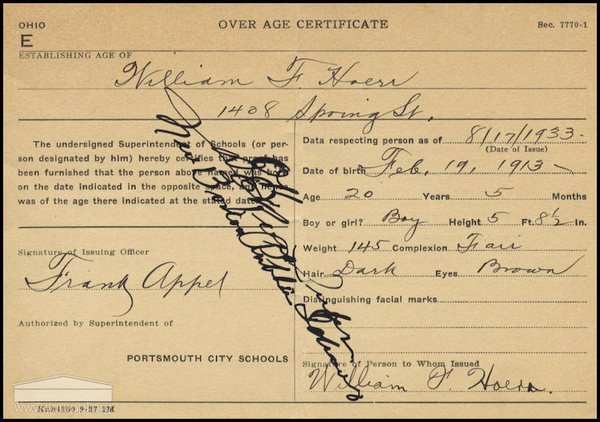 OHIO
OVER AGE CERTIFICATE
Sec. 7770-1
E
ESTABLISHING AGE OF
William F. Hoerr
1408 Spring St.
The undersigned Superintendent of Schools (or per-
son designated by him) hereby certifies that proof has
been furnished that the person above named was born
on the date indicated in the opposite space, and hence
was of the age there indicated at the stated date.
Signature of Issuing Officer
Frank Appel
Authorized by Superintendent of
PORTSMOUTH CITY SCHOOLS
Data respecting person as of 8/17/1933
(Date of Issue)
Date of birth Feb. 19, 1913
Age 20 Years 5 Months
Boy or girl? Boy Height 5 Ft. 8½ In.
Weight 145 Complexion Fair
Hair Dark Eyes Brown
Distinguishing facial marks
Signature of Person to Whom Issued
William F. Hoerr.
Public Schools
9-27 2M